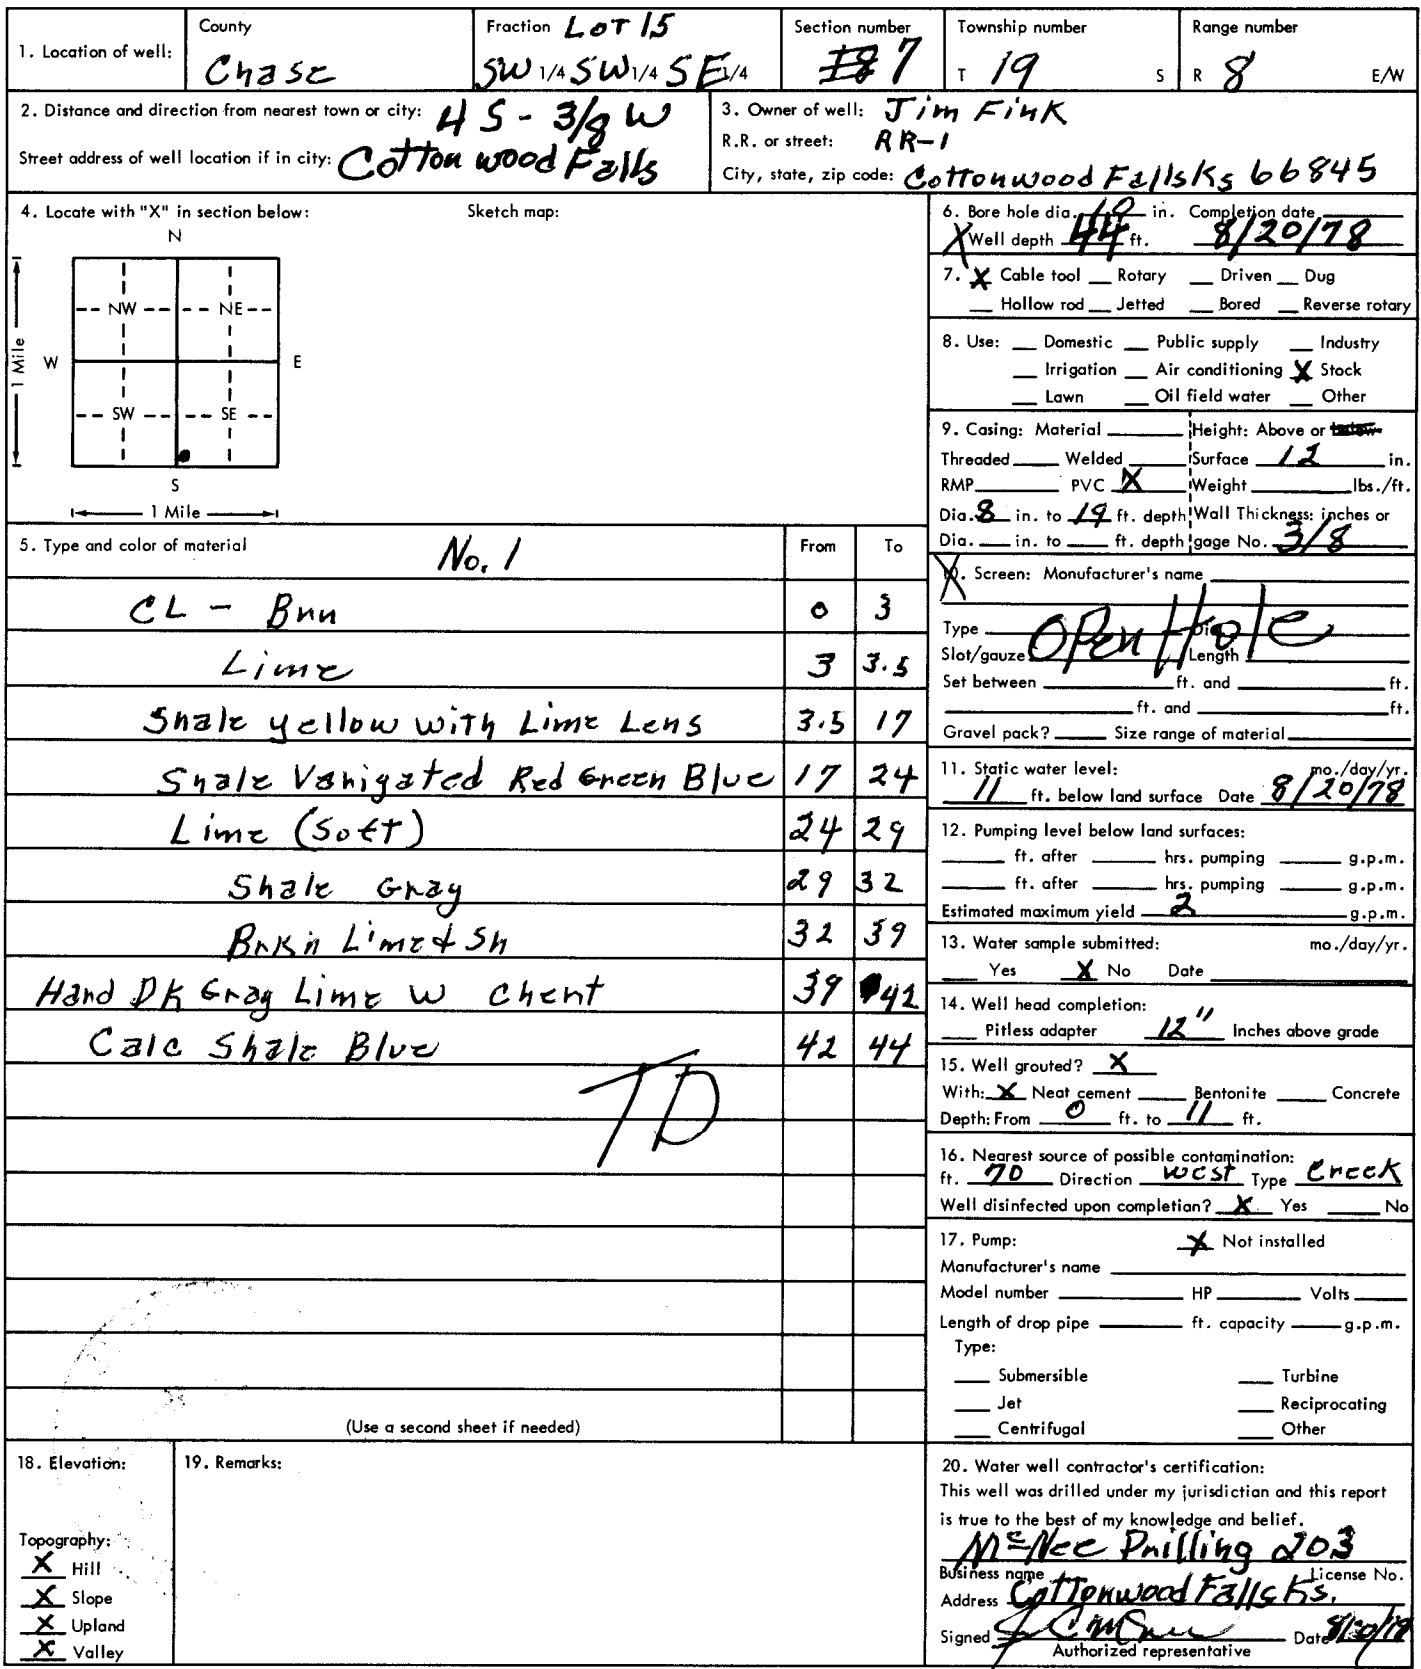 1. Location of well:
County
Chase
Fraction LOT 15
SW 1/4 SW 1/4 SE 1/4
Section number
7
Township number
T 19 S
Range number
R 8 E/W
2. Distance and direction from nearest town or city: 4 S - 3/8 W
Street address of well location if in city: Cottonwood Falls
3. Owner of well: Jim Fink
R.R. or street: RR-1
City, state, zip code: Cottonwood Falls Ks 66845
4. Locate with "X" in section below:
Sketch map:
N
NW NE
W E
1 Mile
SW SE
S
1 Mile
5. Type and color of material No. 1 From To
CL - Brn 0 3
Lime 3 3.5
Shale yellow with Lime Lens 3.5 17
Shale Varigated Red Green Blue 17 24
Lime (Soft) 24 29
Shale Gray 29 32
Brkn Lime + Sh 32 39
Hard DK Gray Lime w chert 39 42
Calc Shale Blue 42 44
TD
(Use a second sheet if needed)
6. Bore hole dia. 10 in. Completion date
X Well depth 44 ft. 8/20/78
7. X Cable tool Rotary Driven Dug
Hollow rod Jetted Bored Reverse rotary
8. Use: Domestic Public supply Industry
Irrigation Air conditioning X Stock
Lawn Oil field water Other
9. Casing: Material Height: Above or below
Threaded Welded Surface 12 in.
RMP PVC X Weight lbs./ft.
Dia. 8 in. to 19 ft. depth Wall Thickness: inches or
Dia. in. to ft. depth gage No. 3/8
X. Screen: Manufacturer's name
Type Open Hole Dia
Slot/gauze Length
Set between ft. and ft.
ft. and ft.
Gravel pack? Size range of material
11. Static water level: mo./day/yr.
11 ft. below land surface Date 8/20/78
12. Pumping level below land surfaces:
ft. after hrs. pumping g.p.m.
ft. after hrs. pumping g.p.m.
Estimated maximum yield 2 g.p.m.
13. Water sample submitted: mo./day/yr.
Yes X No Date
14. Well head completion:
Pitless adapter 12" Inches above grade
15. Well grouted? X
With: X Neat cement Bentonite Concrete
Depth: From 0 ft. to 11 ft.
16. Nearest source of possible contamination:
ft. 70 Direction west Type Creek
Well disinfected upon completion? X Yes No
17. Pump: X Not installed
Manufacturer's name
Model number HP Volts
Length of drop pipe ft. capacity g.p.m.
Type:
Submersible Turbine
Jet Reciprocating
Centrifugal Other
18. Elevation:
Topography:
X Hill
X Slope
X Upland
X Valley
19. Remarks:
20. Water well contractor's certification:
This well was drilled under my jurisdiction and this report
is true to the best of my knowledge and belief.
McNee Drilling 203
Business name License No.
Address Cottonwood Falls Ks.
Signed Date
Authorized representative